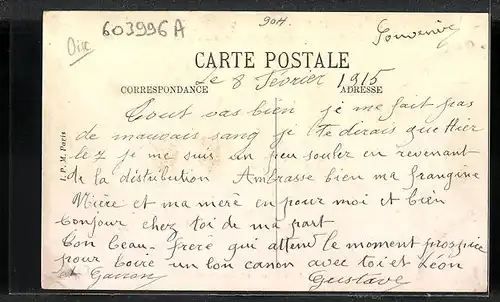 603996A
904
Souvenir
Oise
CARTE POSTALE
CORRESPONDANCE
ADRESSE
Le 8 Février 1915
I. P. M. Paris
Tout vas bien je me fait pas
de mauvais sang je te dirais que Hier
le 7 je me suis un peu souler en revenant
de la distribution Ambrasse bien ma frangine
Mière et ma mère en pour moi et bien
Bonjour chez toi de ma part
Ton beau-frere qui attend le moment prospice
pour boire un bon canon avec toi et Léon
Gustave